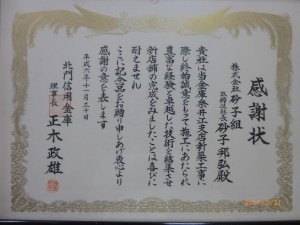 感謝状
株式会社 砂子組
取締役社長 砂子邦弘殿
貴社は当金庫奈井江支店新築工事に
際し終始誠意をもって施工にあたられ
豊富な経験と卓越した技術を結集させ
新店舗の完成をみましたことは喜びに
耐えません
ここに記念品をお贈り申しあげ衷心より
感謝の意を表します
平成六年十一月三十日
北門信用金庫
理事長 正木政雄